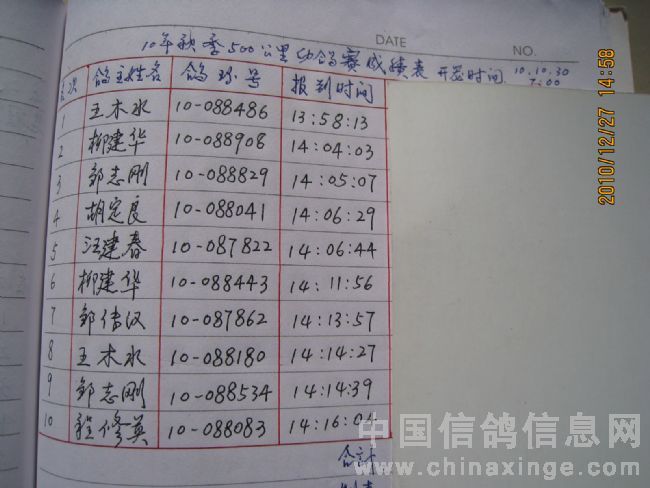 DATE NO.
10年秋季500公里幼鸽赛成绩表 开笼时间 10.10.30
7:00
名次 鸽主姓名 鸽环号 报到时间
1 王木水 10-088486 13:58:13
2 柳建华 10-088908 14:04:03
3 邹志刚 10-088829 14:05:07
4 胡定良 10-088041 14:06:29
5 汪建春 10-087822 14:06:44
6 柳建华 10-088443 14:11:56
7 邹传汉 10-087862 14:13:57
8 王木水 10-088180 14:14:27
9 邹志刚 10-088534 14:14:39
10 程修英 10-088083 14:16:04
合计
2010/12/27 14:58
中国信鸽信息网
www.chinaxinge.com